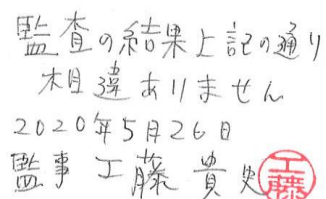 監査の結果上記の通り
相違ありません
2020年5月26日
監事 工藤貴史 工藤